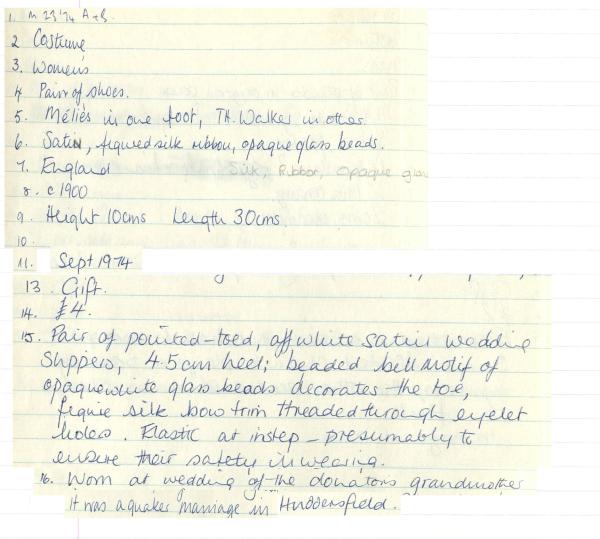 1. m 23'74 A+B.
2 Costume
3. Women's
4 Pair of shoes.
5. Méliès in one foot, TH. Walker in other.
6. Satin, figured silk ribbon, opaque glass beads.
7. England Silk, Ribbon, opaque glas
8. c 1900
9. Height 10cms Length 30cms
10.
11. Sept 1974
13. Gift.
14. £4.
15. Pair of pointed-toed, off white satin wedding
slippers, 4.5cm heel; beaded bell motif of
opaque white glass beads decorates the toe,
figure silk bow trim threaded through eyelet
holes. Elastic at instep - presumably to
ensure their safety in wearing.
16. Worn at wedding of the donators grandmother
it was a quaker marriage in Huddersfield.